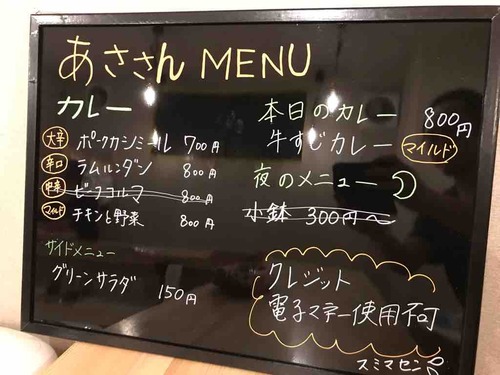 あささん MENU
カレー
大辛 ポークカシミール 700円
辛口 ラムルンダン 800円
中辛 ビーフコルマ 800円
マイルド チキンと野菜 800円
サイドメニュー
グリーンサラダ 150円
本日のカレー 800円
牛すじカレー マイルド
夜のメニュー
小鉢 300円~
クレジット
電子マネー使用不可
スミマセン